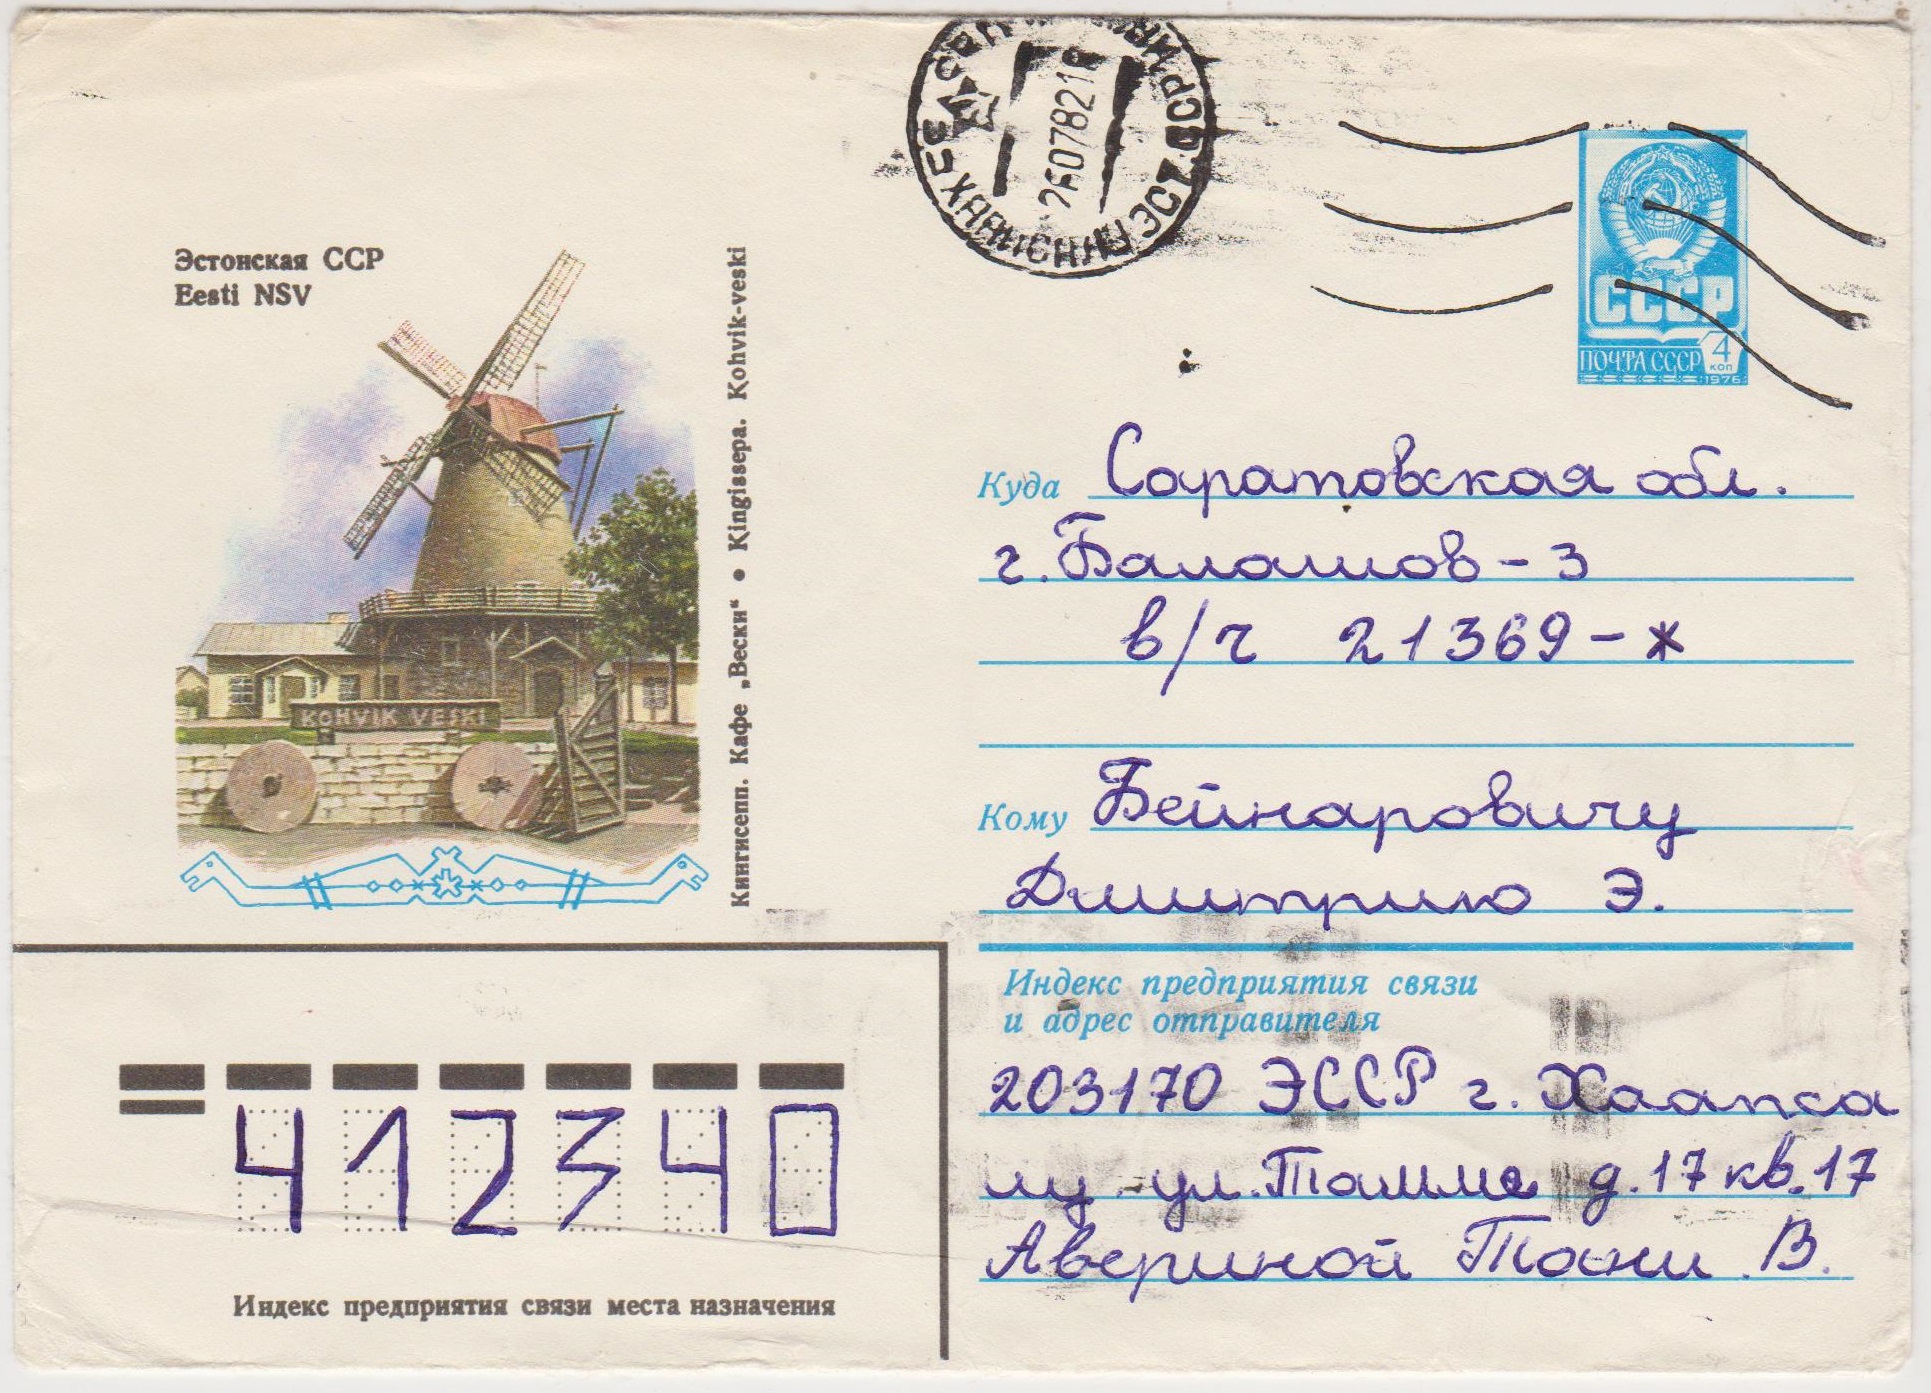 Эстонская ССР
Eesti NSV
KOHVIK VESKI
Кингисепп. Кафе „Вески“ • Kingissepa. Kohvik-veski
260782 18
СССР
ПОЧТА СССР 4 коп
1976
Куда Саратовская обл.
г. Балашов-3
в/ч 21369-ж
Кому Бейнаровичу
Дмитрию Э.
Индекс предприятия связи
и адрес отправителя
203170 ЭССР г. Хаапса
лу ул. Тамме д.17 кв.17
Авериной Тани В.
412340
Индекс предприятия связи места назначения